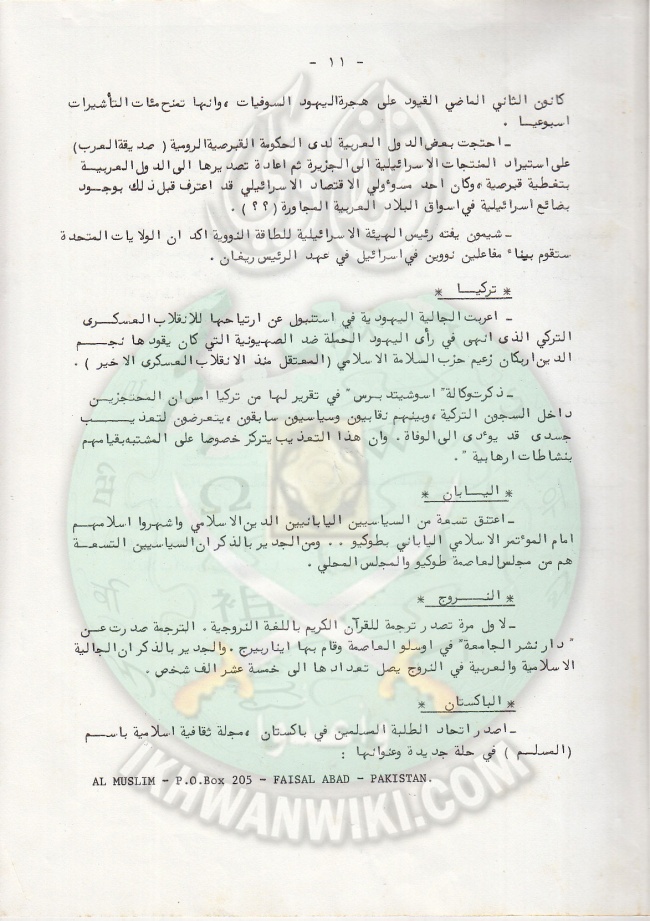 - ١١ -
كانون الثاني الماضي القيود على هجرة اليهود السوفيات ،وانها تمنح مئات التأشيرات
اسبوعيا .
ـ احتجت بعض الدول العربية لدى الحكومة القبرصية الرومية ( صديقة العرب)
على استيراد المنتجات الاسرائيلية الى الجزيرة ثم اعادة تصديرها الى الدول العربية
بتغطية قبرصية ،وكان احد مسؤولي الاقتصاد الاسرائيلي قد اعترف قبل ذلك بوجود
بضائع اسرائيلية في اسواق البلاد العربية المجاورة (؟؟) .
ـ شيمون يفته رئيس الهيئة الاسرائيلية للطاقة النووية اكد ان الولايات المتحدة
ستقوم ببناء مفاعلين نووين في اسرائيل في عهد الرئيس ريغان .
* تركيا *
ـ اعربت الجالية اليهودية في استنبول عن ارتياحها للانقلاب العسكرى
التركي الذى انهى في رأى اليهود الحملة ضد الصهيونية التي كان يقودها نجم
الدين اربكان زعيم حزب السلامة الاسلامي (المعتقل منذ الانقلاب العسكرى الاخير ) .
ـ ذكرت وكالة " اسوشيتد برس" في تقرير لها من تركيا امس ان المحتجزين
داخل السجون التركية ،وبينهم نقابيون وسياسيون سابقون ،يتعرضون لتعذيب
جسدى قد يؤدى الى الوفاة . وان هذا التعذيب يتركز خصوصا على المشتبه بقيامهم
بنشاطات ارهابية " .
* اليابان *
ـ اعتنق تسعة من السياسيين اليابانيين الدين الاسلامي واشهروا اسلامهم
امام المؤتمر الاسلامي الياباني بطوكيو .. ومن الجدير بالذكر ان السياسيين التسعة
هم من مجلس العاصمة طوكيو والمجلس المحلي .
* النروج *
ـ لاول مرة تصدر ترجمة للقرآن الكريم باللغة النروجية . الترجمة صدرت عن
" دار نشر الجامعة" في اوسلو العاصمة وقام بها اينار بيرج .والجدير بالذكر ان الجالية
الاسلامية والعربية في النروج يصل تعدادها الى خمسة عشر الف شخص .
* الباكستان *
ـ اصدر اتحاد الطلبة المسلمين في باكستان ،مجلة ثقافية اسلامية باسم
(المسلم ) في حلة جديدة وعنوانها :
AL MUSLIM - P.O.Box 205 - FAISAL ABAD - PAKISTAN.
IKHWANWIKI.COM